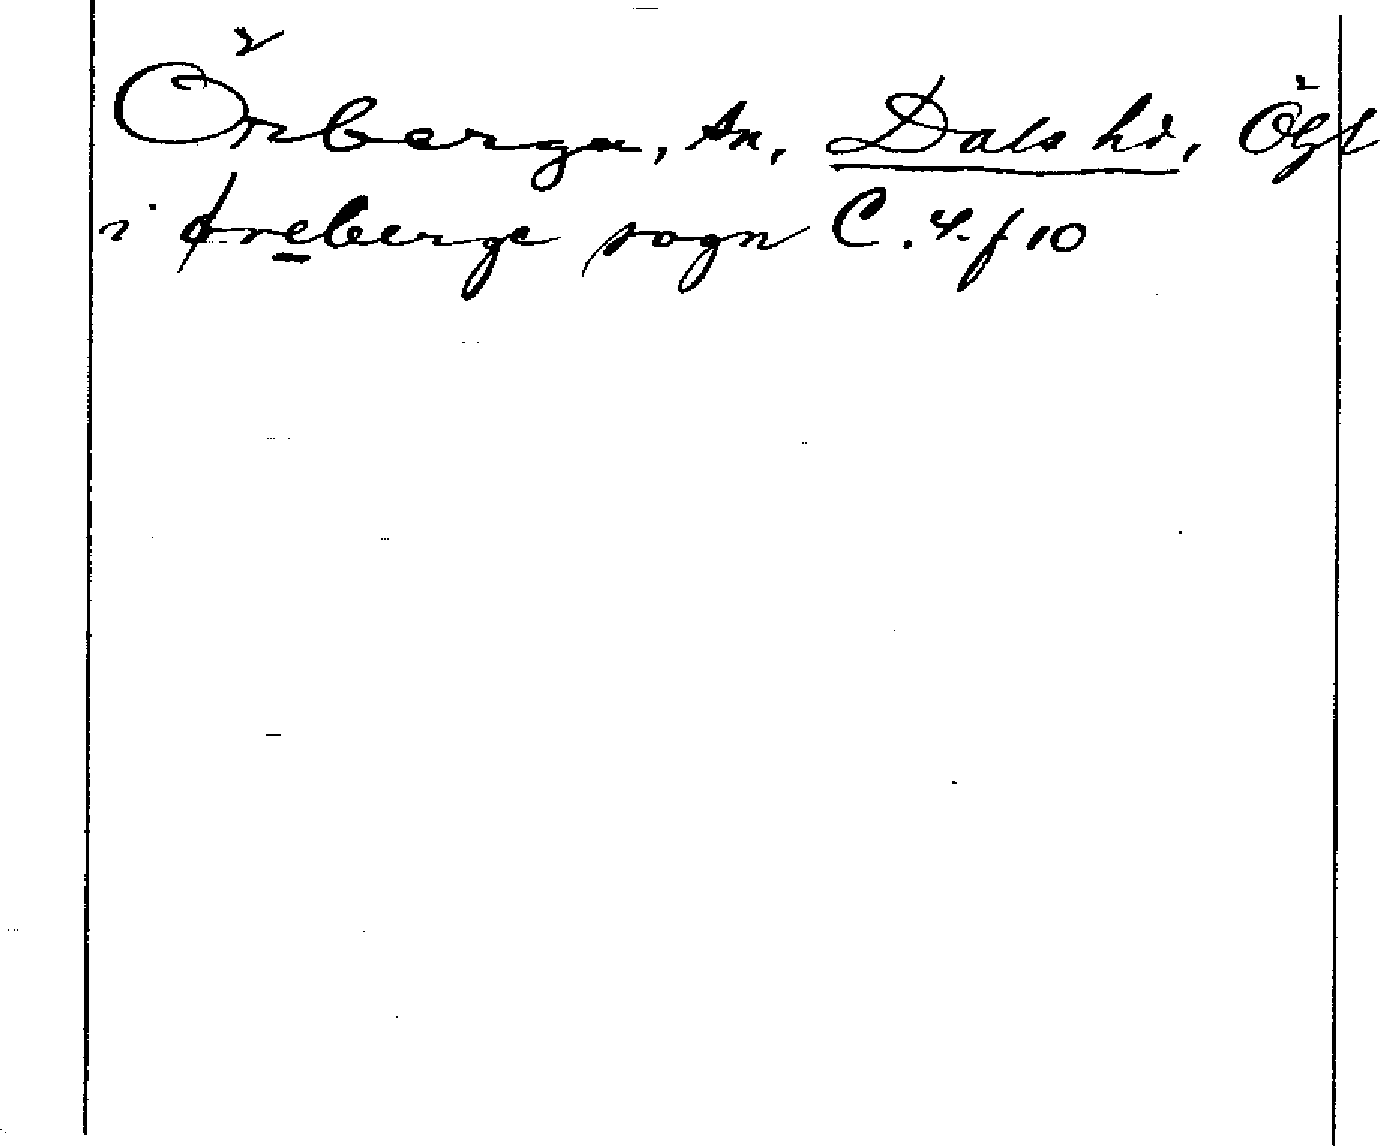 Örberga, sn, Dals hd, Ögl
i øreberge sogn C. 4. f 10